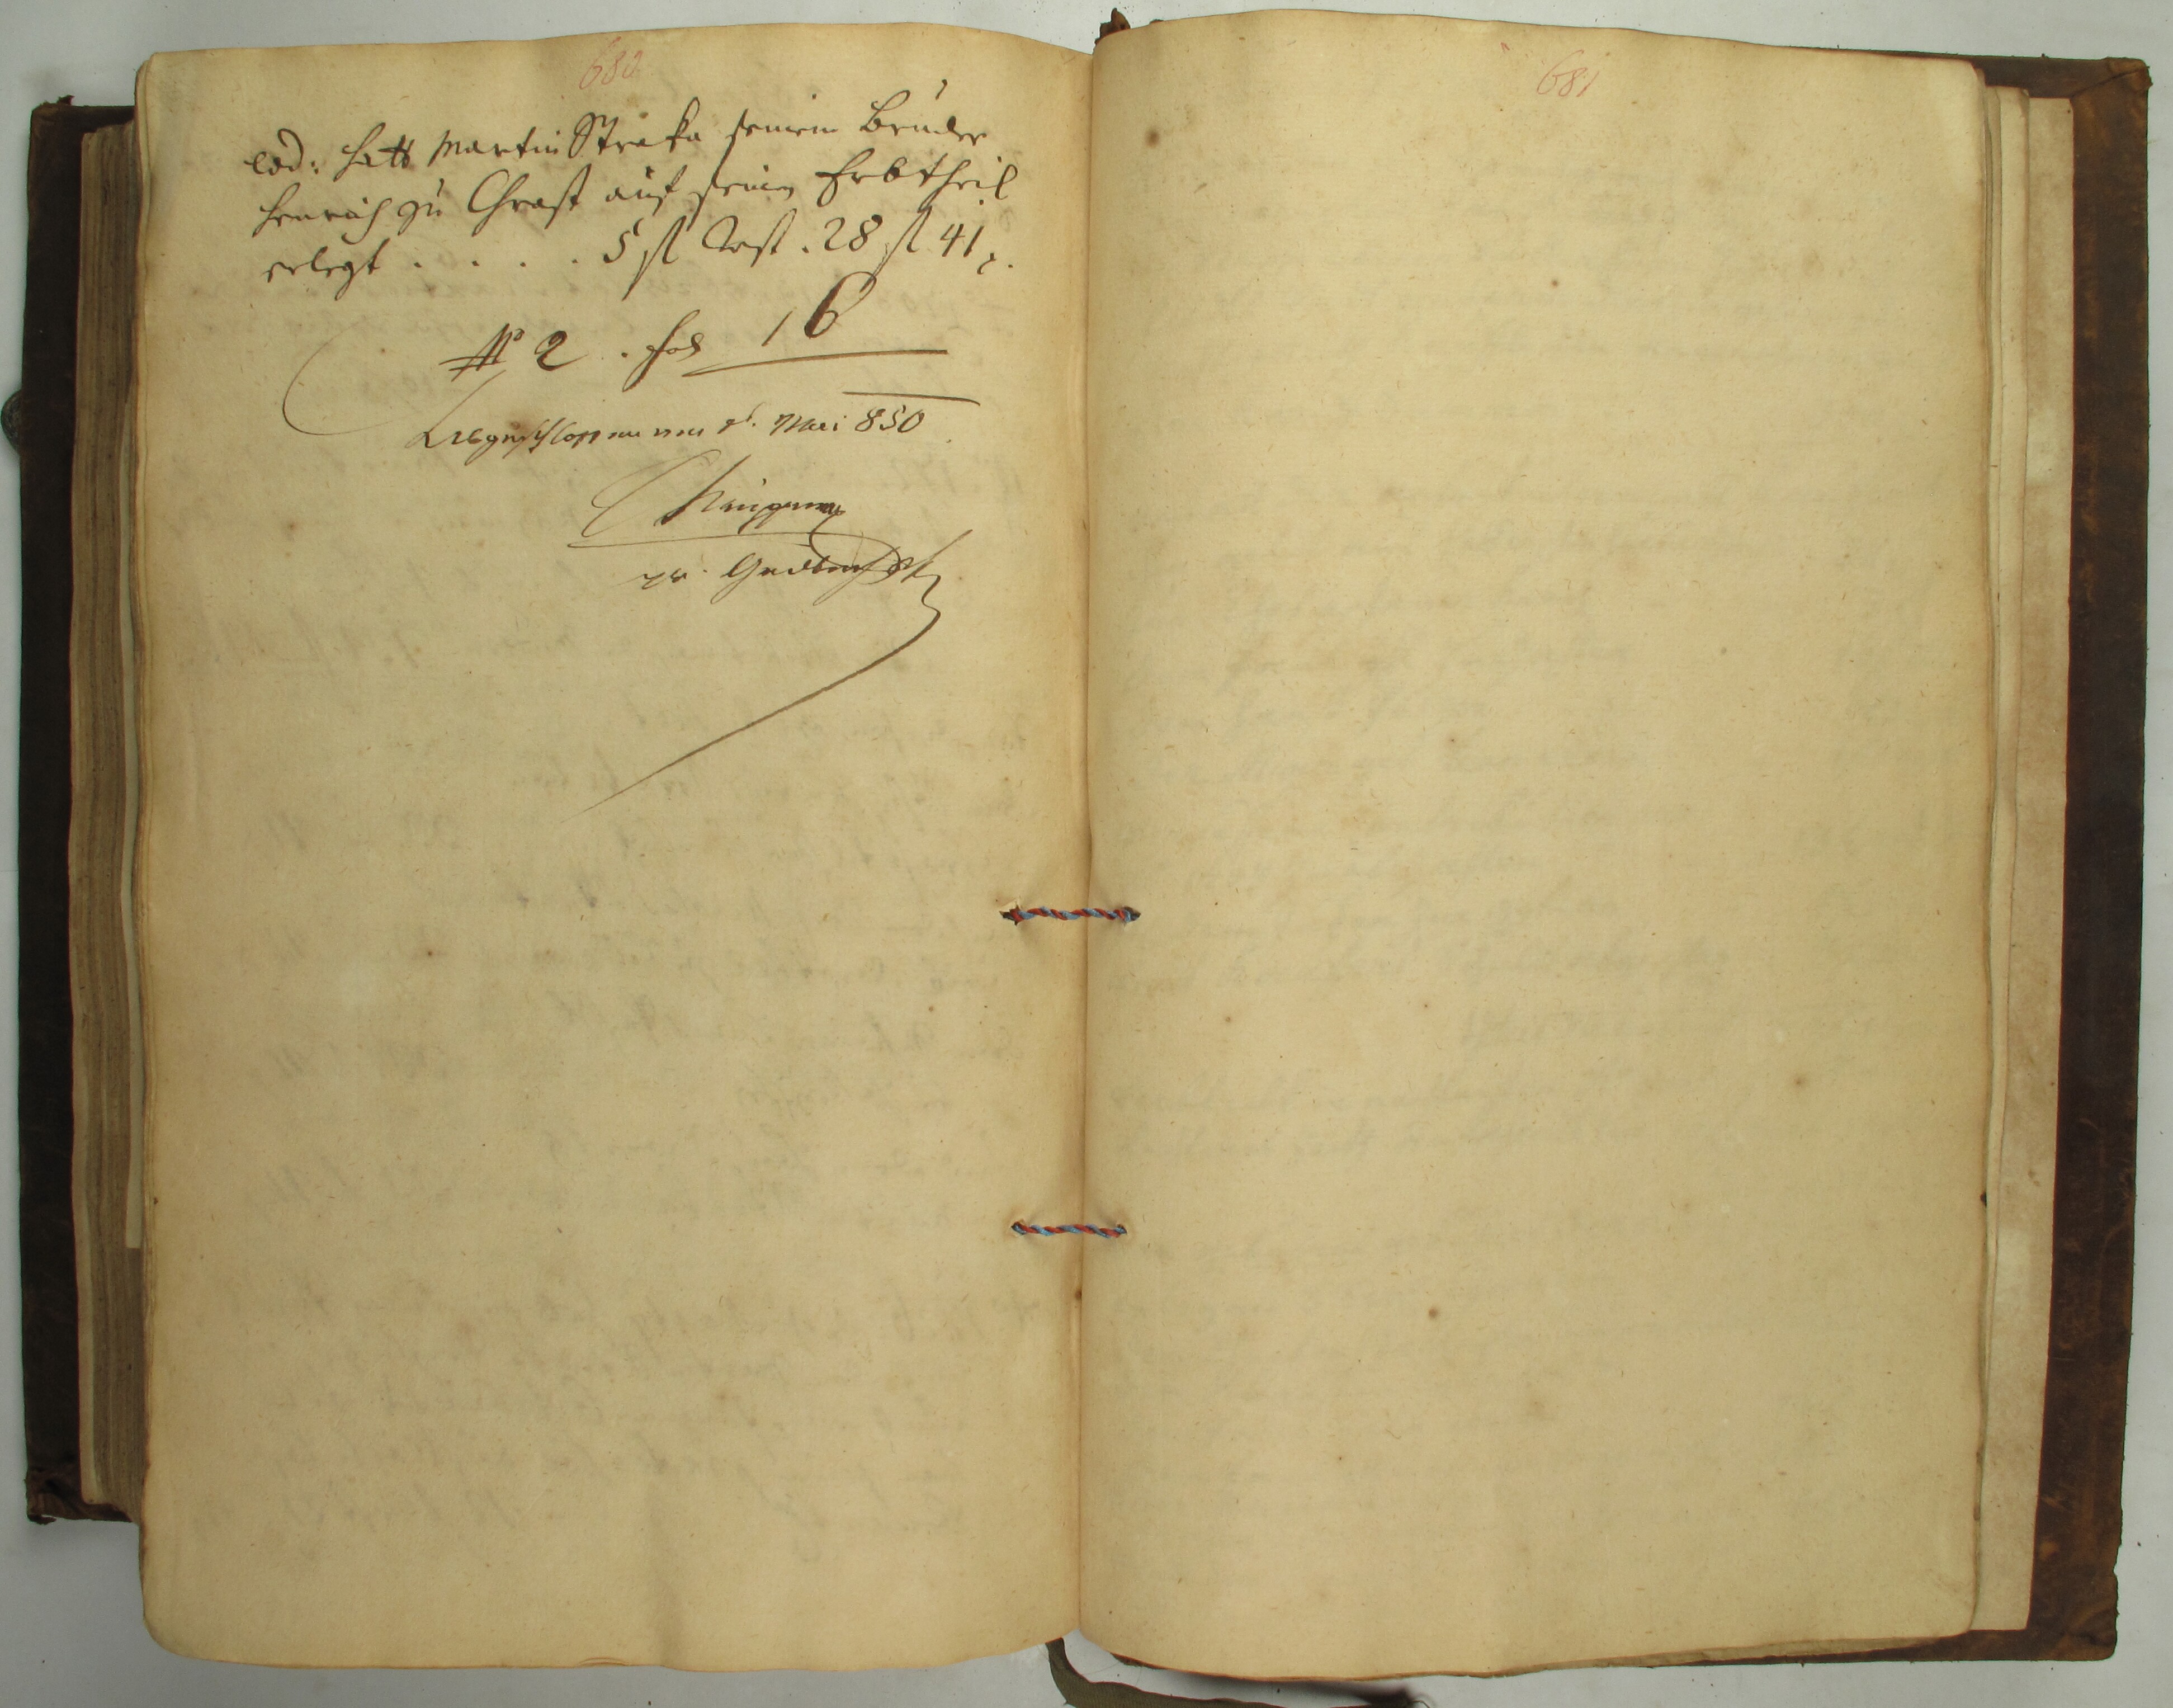 680
eod: hatt Martin Straka seinem Bruder
Henrich zu Chrast auf seinen Erbtheil
erlegt . . . . 5 fl Rest . 28 fl 41 x.
No 2 . fol 16
Abgeschlossen am Mai 850
681